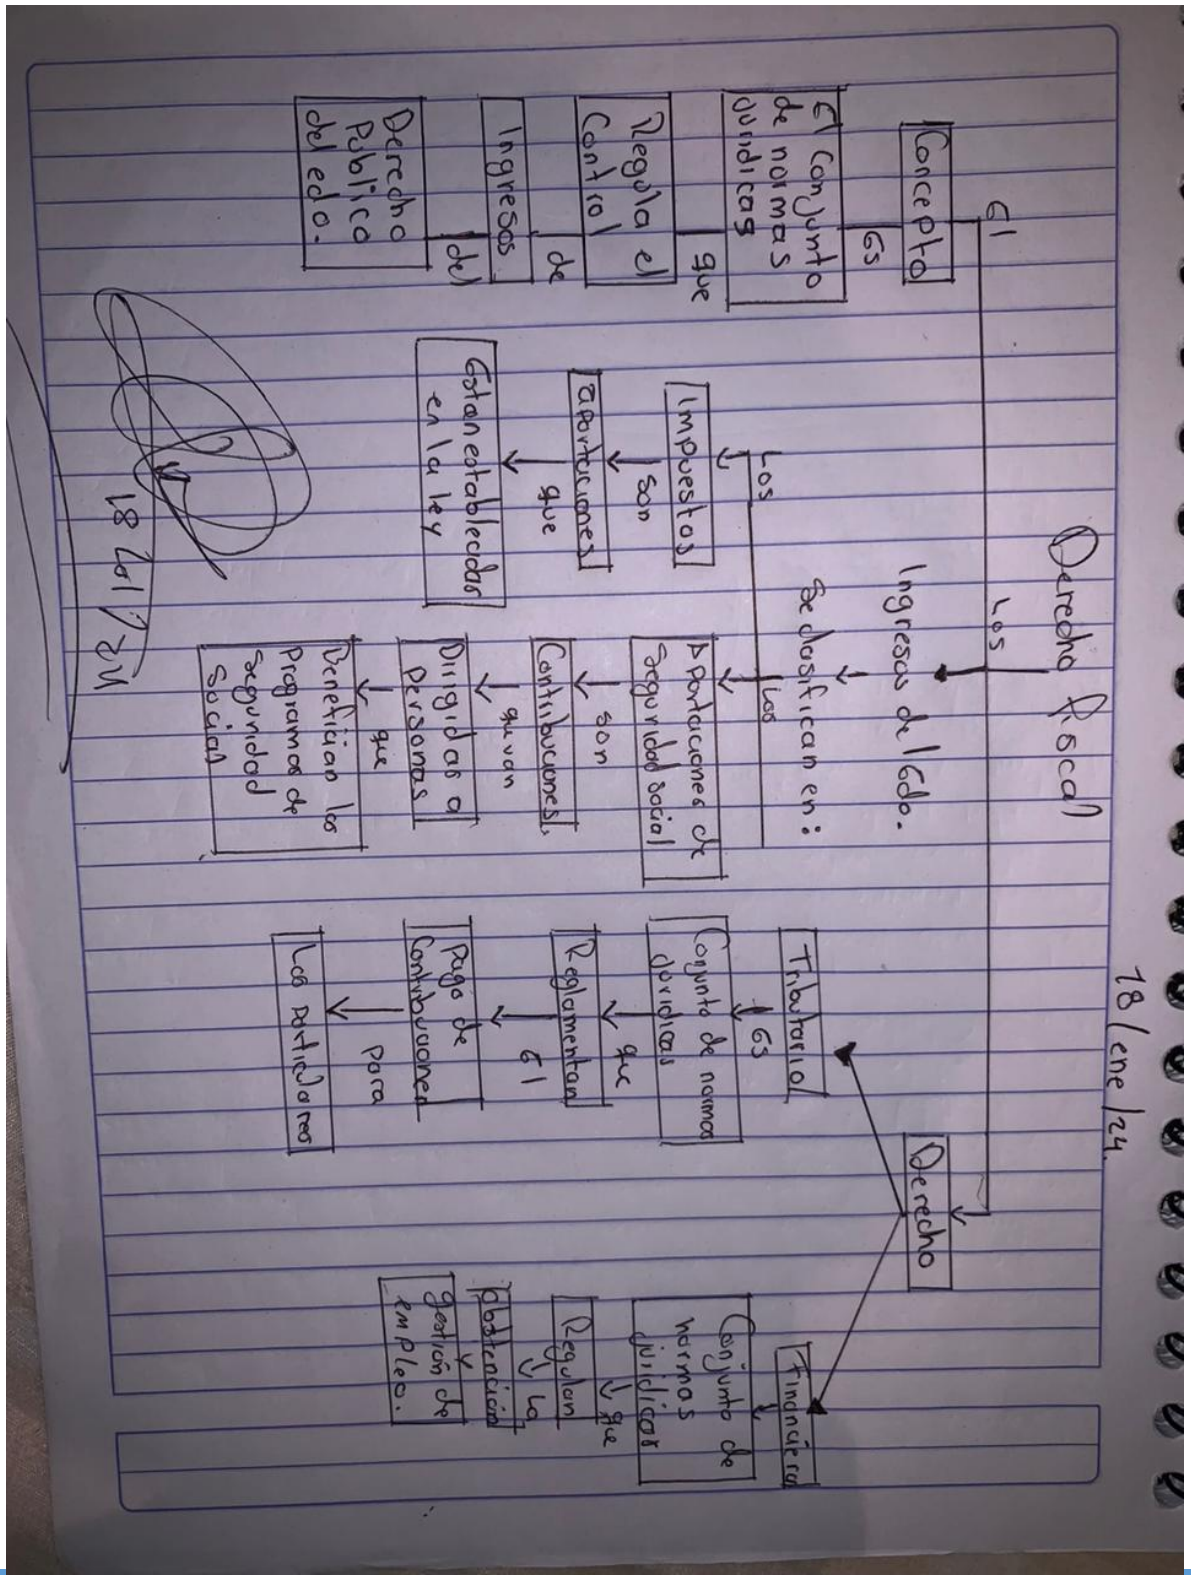 18/ene/24.
Derecho fiscal
El
Los
Concepto
Es
El Conjunto
de normas
Juridicas
que
Regula el
Control
de
Ingresos
del
Derecho
Público
del edo.
Ingresos del Edo.
Se clasifican en:
Los
Impuestos
son
aportaciones
que
Estan establecidas
en la ley
Los
Aportaciones de
Seguridad social
son
Contribuciones
que van
Dirigidas a
Personas
que
Benefician los
Programas de
Seguridad
Social
Derecho
Tributario
Es
Conjunto de normas
Juridicas
que
Reglamentan
El
Pago de
Contribuciones
para
Los particulares
Financiero
Conjunto de
normas
juridicas
que
Regulan
La
obstencion
y
gestión de
empleo.